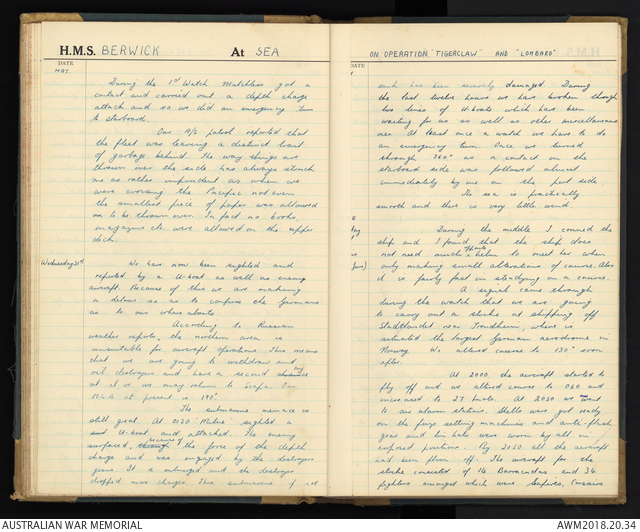 H.M.S. BERWICK At SEA
DATE
MAY.
During the 1st Watch Matchless got a
contact and carried out a depth charge
attack and so we did an emergency turn
to starboard.
Our A/S patrol reported that
the fleet was leaving a distinct trail
of garbage behind. The way things are
thrown over the side has always struck
me as rather imprudent as when we
were crossing the Pacific not even
the smallest piece of paper was allowed
on to be thrown over. In fact no books,
magazines etc were allowed on the upper
deck.
Wednesday 31st
We have now been sighted and
reported by a U-boat as well as enemy
aircraft. Because of this we are making
a detour so as to confuse the Germans
as to our where abouts
According to Russian
weather reports, the northern area is
unsuitable for aircraft operations. This means
that we are going to withdraw and
oil destroyers and have a second
at it or we may return to Scapa. Our
M.L.A at present is 190°
The submarine menace is
still great. At 0130 Milne sighted a
U-boat and attacked. The enemy
surfaced, through the force of the depth
charge and was engaged by the destroyers
guns. It submerged and the destroyer
dropped more charges. This submarine if not
ON OPERATION "TIGERCLAW" AND "LOMBARD"
DATE
sunk has been severely damaged. During
the last twelve hours we have broken through
two lines of U-boats which have been
waiting for us as well as other miscellaneous
ones. At least once a watch we have to do
an emergency turn. Once we turned
through 360° as a contact on the
starboard side was followed almost
immediately by one on the port side
The sea is practically
smooth and there is very little wind
During the middle I conned the
ship and I found that the ship does
not need much opposite helm to meet her when
only making small alterations of course. Also
it is fairly fast in steadying on a course.
A signal came through
during the watch that we are going
to carry out a strike at shipping off
Stadtlandet near Trondheim, where is
situated the largest German aerodrome in
Norway. We altered course to 130° soon
after.
At 2000 the aircraft started to
fly off and we altered course to 060 and
increased to 27 knots. At 2030 we went
to air alarm stations. Shells were got ready
on the fuze setting machines and anti-flash
gear and tin hats were worn by all in
exposed positions. By 2050 all the aircraft
had been flown off. The aircraft for the
strike consisted of 14 Barracudas and 34
fighters amongst which were Seafires, Corsairs
AUSTRALIAN WAR MEMORIAL
AWM2018.20.34